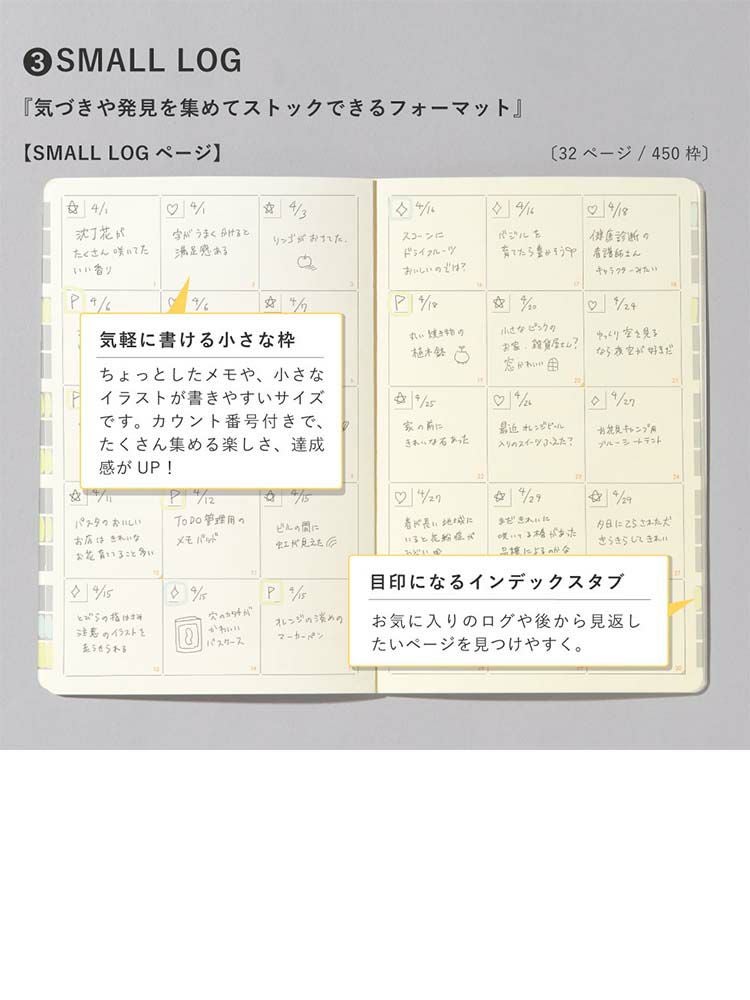 ❸SMALL LOG
『気づきや発見を集めてストックできるフォーマット』
【SMALL LOG ページ】
〔32 ページ / 450 枠〕
4/1
沈丁花が
たくさん咲いてた
いい香り
1
4/1
字がうまく書けると
満足感ある
2
4/3
リンゴがおちてた。
3
P 4/6
4/6
4/7
気軽に書ける小さな枠
ちょっとしたメモや、小さな
イラストが書きやすいサイズ
です。カウント番号付きで、
たくさん集める楽しさ、達成
感がUP！
4/11
パスタのおいしい
お店はきれいな
お花育ててること多い
P 4/12
TODO管理用の
メモパッド
4/15
ビルの間に
虹が見えた
4/15
とびらの指はさみ
注意のイラストを
13
4/15
穴のカタチが
かわいい
パスケース
14
P 4/15
オレンジの
マーカーペン
4/16
スコーンに
ドライフルーツ
おいしいのでは？
16
4/16
バジルを
育てたら
17
4/18
健康診断の
看護師さん
キャラクターみたい
18
P 4/18
丸い焼き物の
植木鉢
19
4/20
小さなピンクの
お家、雑貨屋さん？
窓かわいい
20
4/24
ゆっくり空を見る
なら夜空が好きだ
21
4/25
家の前に
きれいな石あった
22
4/26
最近オレンジピール
入りのスイーツふえた？
23
4/27
お花見キャンプ用
ブルーシートテント
24
4/27
春が長い地域に
いると花粉症が
4/29
まだきれいに
咲いてる椿があった
4/29
夕日にてらされた犬
きらきらしてきれい
目印になるインデックスタブ
お気に入りのログや後から見返し
たいページを見つけやすく。
30